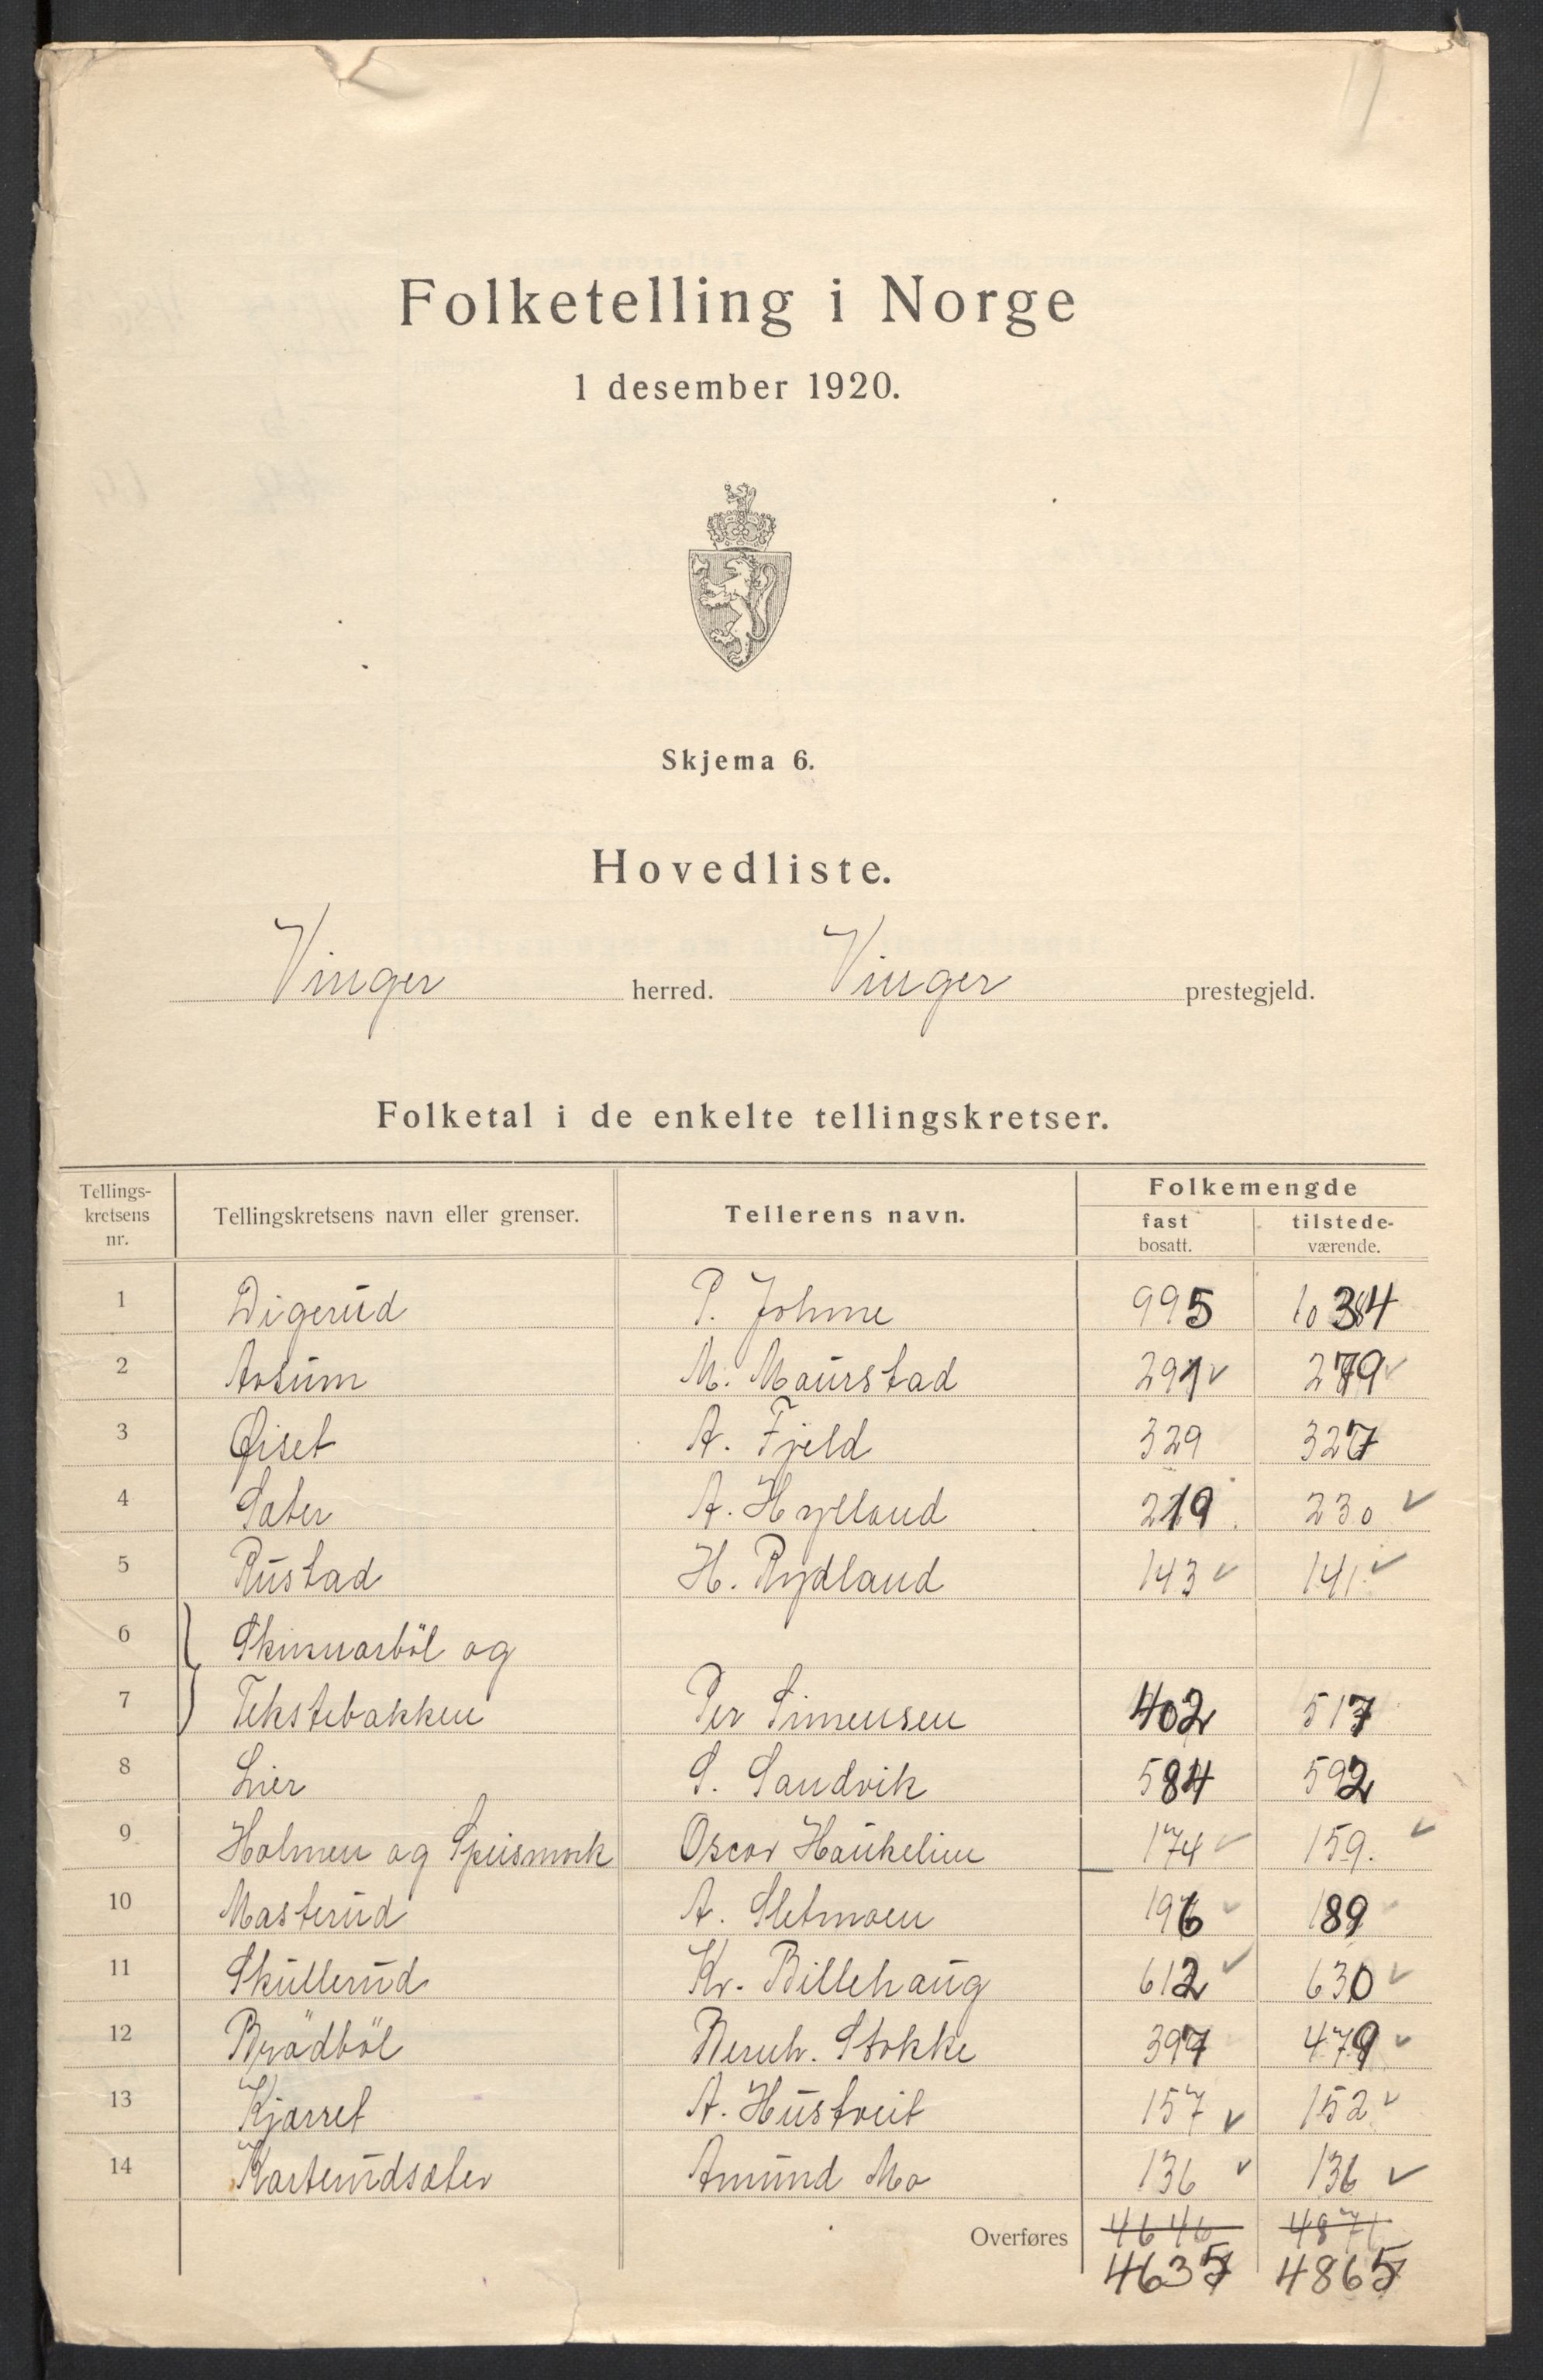 Folketelling i Norge
1 desember 1920.
Skjema 6.
Hovedliste.
Vinger herred. Vinger prestegjeld.
Folketal i de enkelte tellingskretser.
Tellings-kretsens nr. Tellingskretsens navn eller grenser. Tellerens navn. Folkemengde
fast bosatt. tilstede-værende.
1 Digerud P. Johme 995 1034
2 Aosum M. Maurstad 291 ✓ 279 ✓
3 Øiset A. Fjeld 329 327
4 Sæter A. Hylland 219 230 ✓
5 Rustad H. Rydland 143 ✓ 141 ✓
6 Skinnarböl og
7 Tekstebakken Per Simensen 402 517
8 Lier S. Sandvik 584 592
9 Holmen og Speismark Oscar Haukelien 174 ✓ 159. ✓
10 Masterud A. Sletmoen 196 ✓ 189
11 Skullerud Kr. Billehaug 612 ✓ 630 ✓
12 Brödböl Bernh. Stokke 397 479 ✓
13 Kjærret A. Hustveit 157 ✓ 152 ✓
14 Karterudsæter Amund Mo 136 ✓ 136 ✓
Overføres 4646 4871
4635 4865